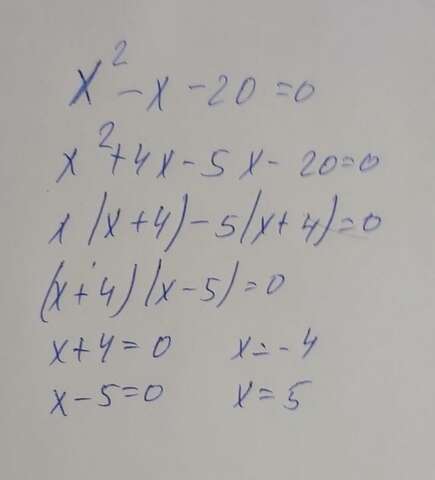 x² - x - 20 = 0
x² + 4x - 5x - 20 = 0
x(x + 4) - 5(x + 4) = 0
(x + 4)(x - 5) = 0
x + 4 = 0 x = -4
x - 5 = 0 x = 5